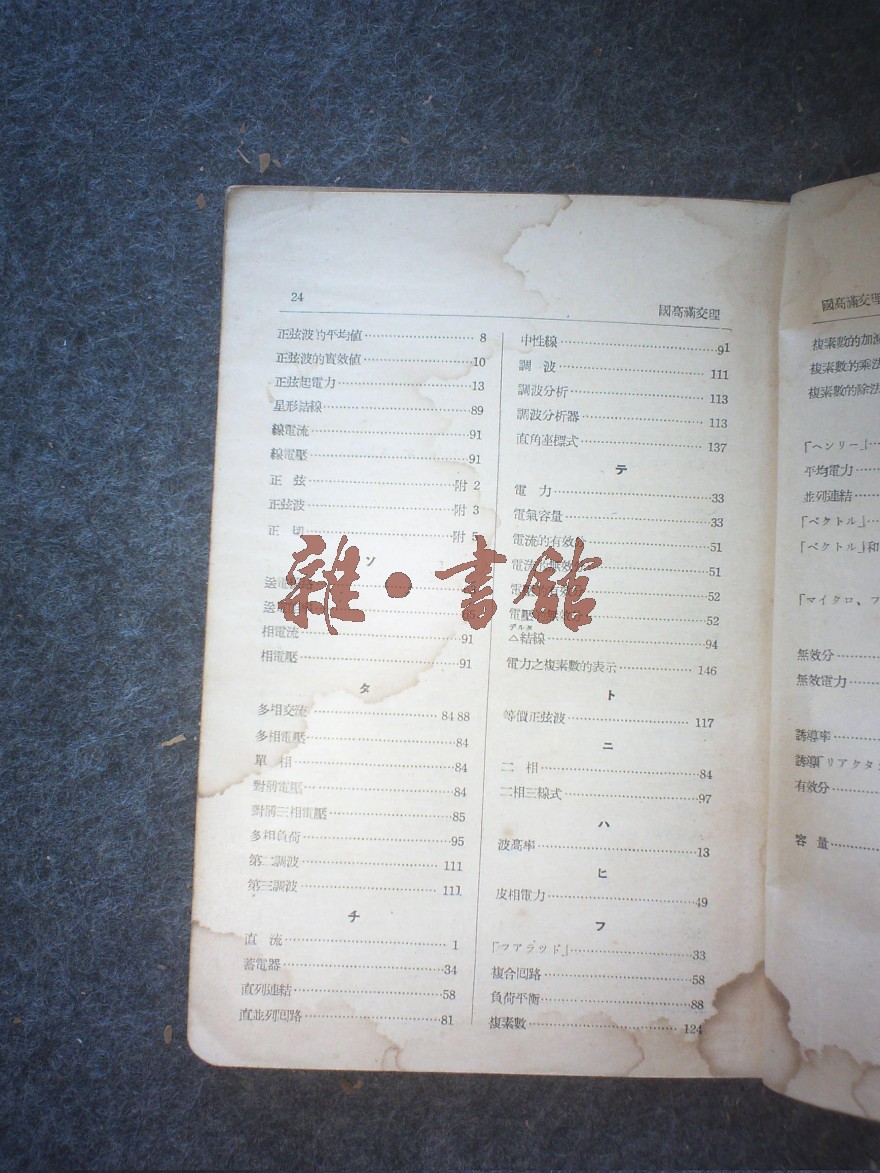 24
國高滿交理
正弦波的平均值 8
正弦波的實效值 10
正弦起電力 13
星形結線 89
線電流 91
線電壓 91
正 弦 附 2
正弦波 附 3
正 切 附 5
ソ
送電
送電
相電流 91
相電壓 91
タ
多相交流 84 88
多相電壓 84
單 相 84
對稱電壓 84
對稱三相電壓 85
多相負荷 95
第二調波 111
第三調波 111
チ
直 流 1
蓄電器 34
直列連結 58
直並列回路 81
中性線 91
調 波 111
調波分析 113
調波分析器 113
直角座標式 137
テ
電 力 33
電氣容量 33
電流的有效分 51
電流的無效分 51
電壓的有效分 52
電壓的無效分 52
デルタ
△結線 94
電力之複素數的表示 146
ト
等價正弦波 117
ニ
二 相 84
二相三線式 97
ハ
波高率 13
ヒ
皮相電力 49
フ
「フアラツド」 33
複合回路 58
負荷平衡 88
複素數 124
國高滿交理
複素數的加減
複素數的乘法
複素數的除法
「ヘンリー」
平均電力
並列連結
「ベクトル」
「ベクトル」和
「マイクロ、フ
無效分
無效電力
誘導率
誘導「リアクタ
有效分
容 量
雜·書館